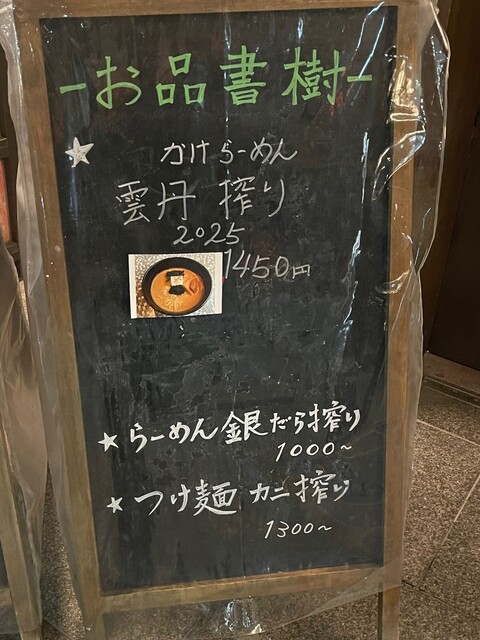 -お品書樹-
★ かけらーめん
雲丹 搾り
2025
1450円
★らーめん 銀だら搾り
1000~
★つけ麺 カニ搾り
1300~